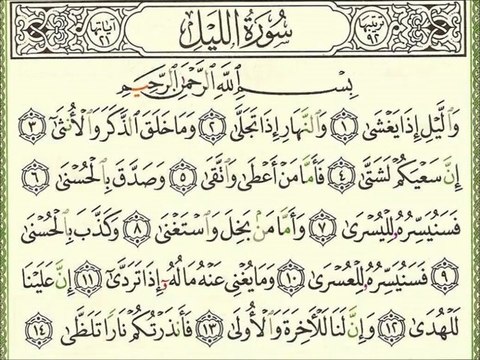 ترتيبها ٩٢ سُورَةُ اللَّيْلِ آياتها ٢١
بِسْمِ ٱللَّهِ ٱلرَّحْمَٰنِ ٱلرَّحِيمِ
وَٱلَّيْلِ إِذَا يَغْشَىٰ ١ وَٱلنَّهَارِ إِذَا تَجَلَّىٰ ٢ وَمَا خَلَقَ ٱلذَّكَرَ وَٱلْأُنثَىٰ ٣
إِنَّ سَعْيَكُمْ لَشَتَّىٰ ٤ فَأَمَّا مَنْ أَعْطَىٰ وَٱتَّقَىٰ ٥ وَصَدَّقَ بِٱلْحُسْنَىٰ ٦
فَسَنُيَسِّرُهُۥ لِلْيُسْرَىٰ ٧ وَأَمَّا مَنۢ بَخِلَ وَٱسْتَغْنَىٰ ٨ وَكَذَّبَ بِٱلْحُسْنَىٰ
٩ فَسَنُيَسِّرُهُۥ لِلْعُسْرَىٰ ١٠ وَمَا يُغْنِى عَنْهُ مَالُهُۥٓ إِذَا تَرَدَّىٰٓ ١١ إِنَّ عَلَيْنَا
لَلْهُدَىٰ ١٢ وَإِنَّ لَنَا لَلْـَٔاخِرَةَ وَٱلْأُولَىٰ ١٣ فَأَنذَرْتُكُمْ نَارًا تَلَظَّىٰ ١٤